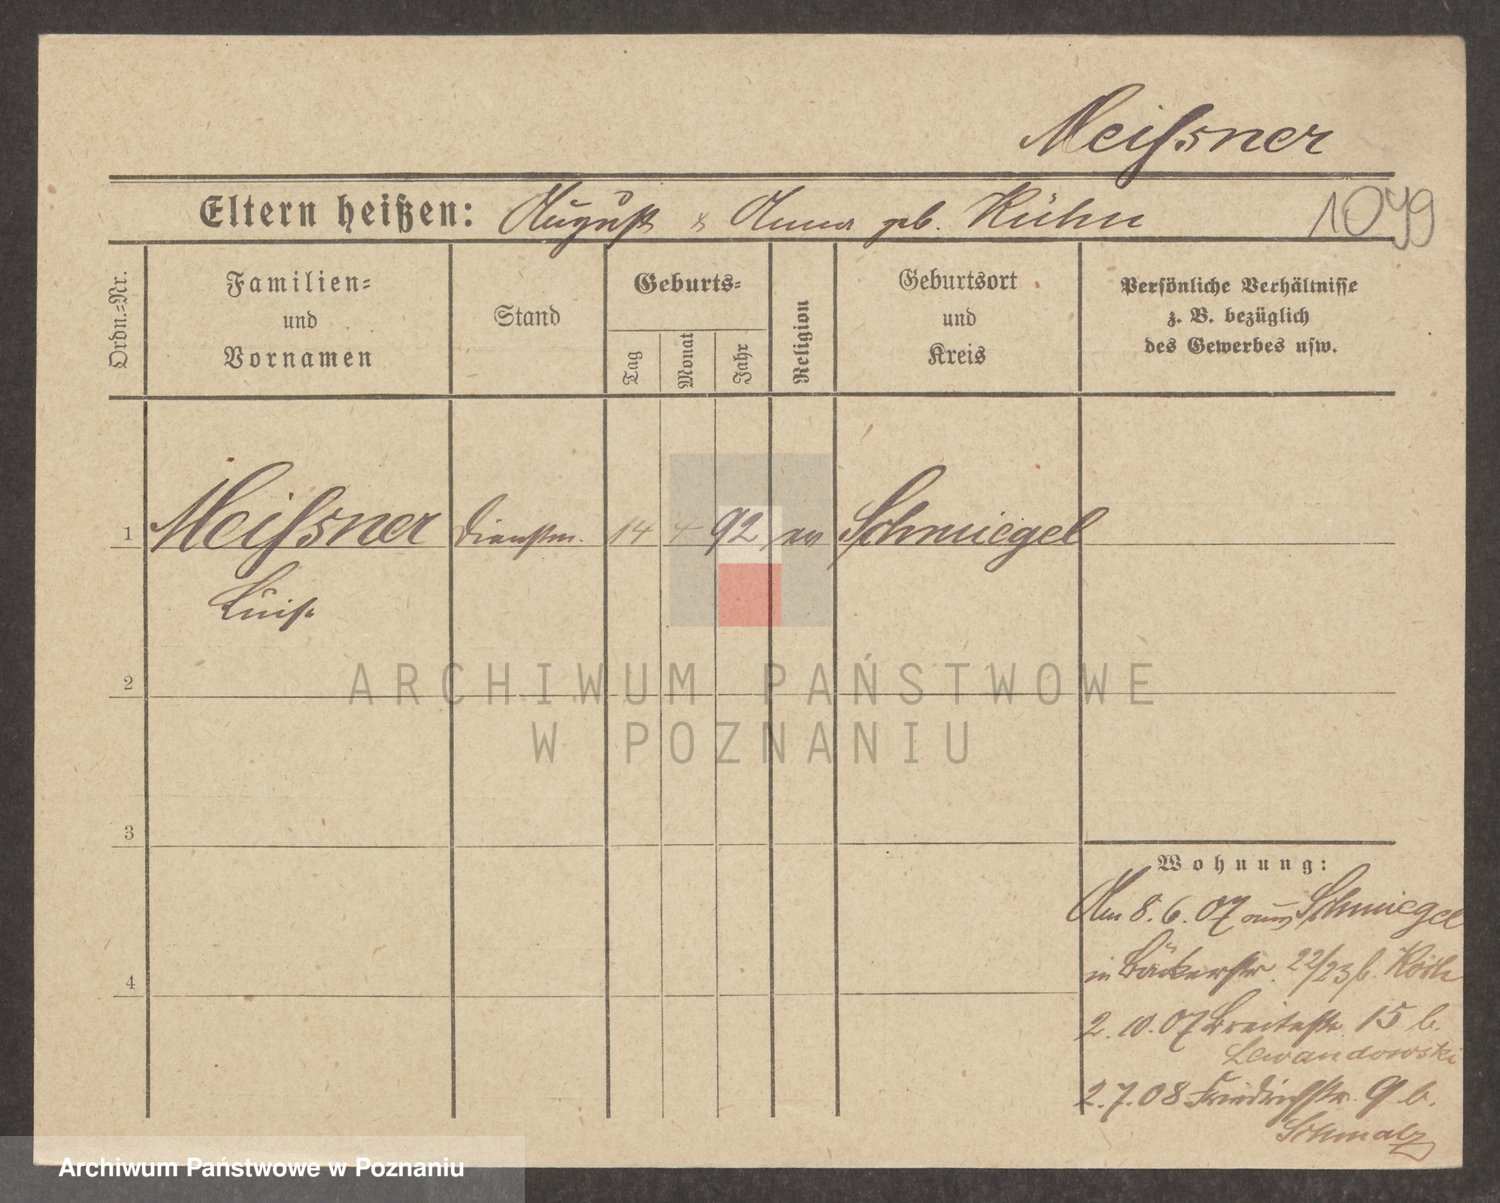 Meißner
Eltern heißen: August & Anna geb. Kühn
1099
Ordn.=Nr.
Familien=
und
Vornamen
Stand
Geburts=
Tag
Monat
Jahr
Religion
Geburtsort
und
Kreis
Persönliche Verhältnisse
z. B. bezüglich
des Gewerbes usw.
1 Meißner Dienstm. 14 4 92 ev Schmiegel
Luise
2
3
4
Wohnung:
Am 8.6.07 aus Schmiegel
in Bäckerstr. 22/23 b.
2.10.07 Breitestr. 15 b.
Lewandowski
2.7.08 Friedrichstr. 9 b.
Schmalz
ARCHIWUM PAŃSTWOWE
W POZNANIU
Archiwum Państwowe w Poznaniu